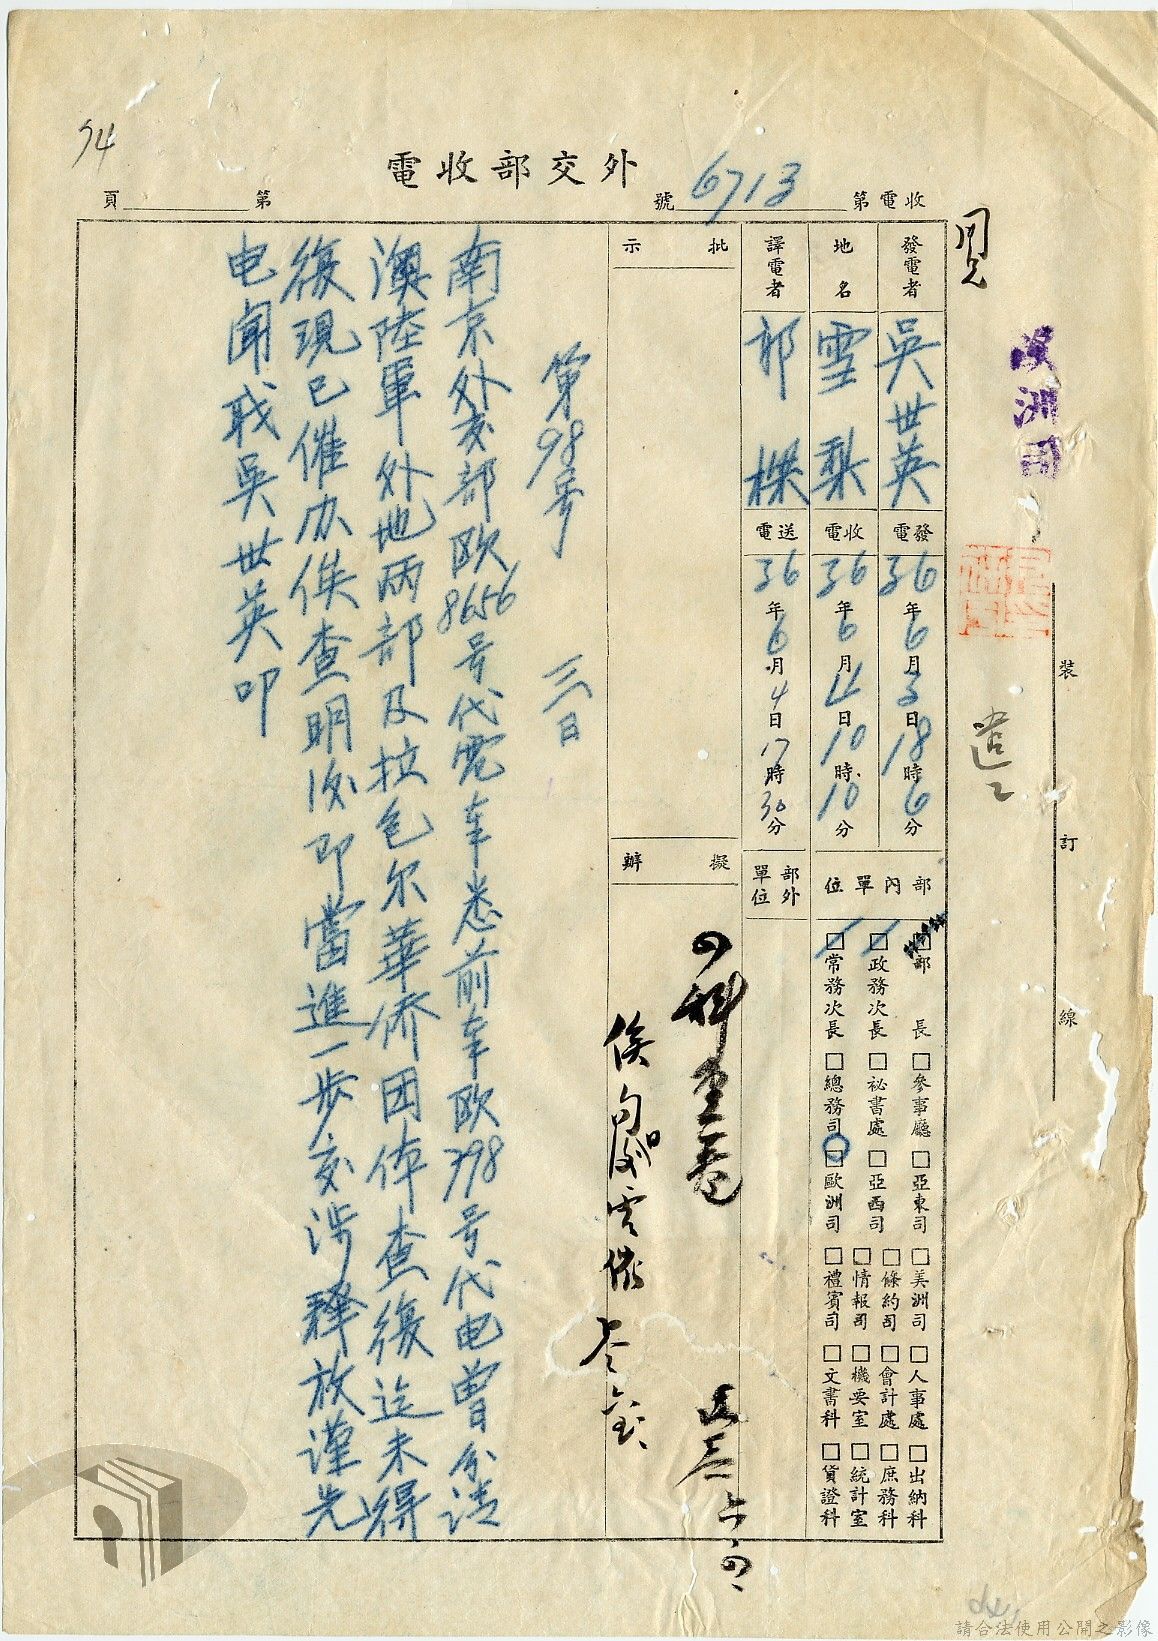 94
外交部收電
收電第6713號
第　　頁
閱
洲司
發電者
吳世英
發電
36年6月3日18時6分
地名
雪梨
收電
36年6月4日10時10分
譯電者
郭樑
送電
36年6月4日17時30分
部內單位
□部長 □參事廳 □亞東司 □美洲司 □人事處 □出納科
□政務次長 □祕書處 □亞西司 □條約司 □會計處 □庶務科
□情報司 □機要室 □統計室
□常務次長 □總務司 □歐洲司 □禮賓司 □文書科 □貨證科
部外單位
批示
擬辦
第98号　三日
南京外交部欧8656号代電奉悉前奉欧798号代电曾分請
澳陸軍外地兩部及拉包尔華侨团体查復迄未得
復現已催办俟查明後即當進一步交涉釋放謹先
电聞職吳世英叩
裝訂線
請合法使用公開之影像